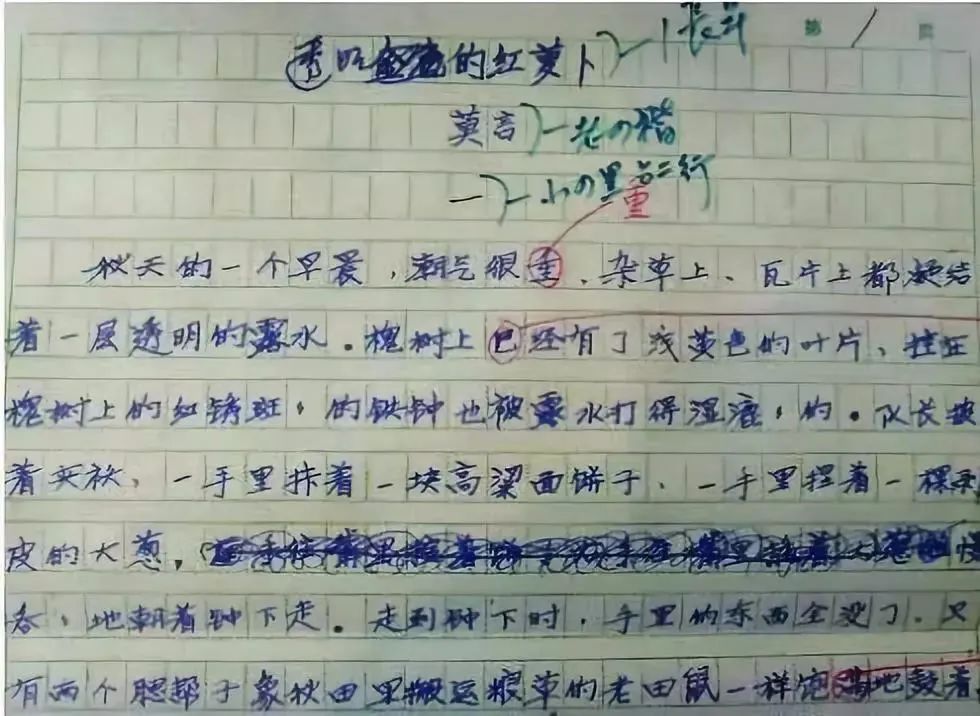 第 / 页
的红萝卜
莫言 老の楷
一 小の黑占二行
重
秋天的一个早晨，潮气很重，杂草上、瓦片上都凝结
着一层透明的露水。槐树上已经有了浅黄色的叶片、挂在
槐树上的红锈斑、的铁钟也被露水打得湿漉、的。队长披
着夹袄、一手里拤着一块高粱面饼子、一手里捏着一棵剥
皮的大葱，慢
吞、地朝着钟下走。走到钟下时，手里的东西全没了，只
有两个腮帮子象秋田里搬运粮草的老田鼠一样饱满地鼓着